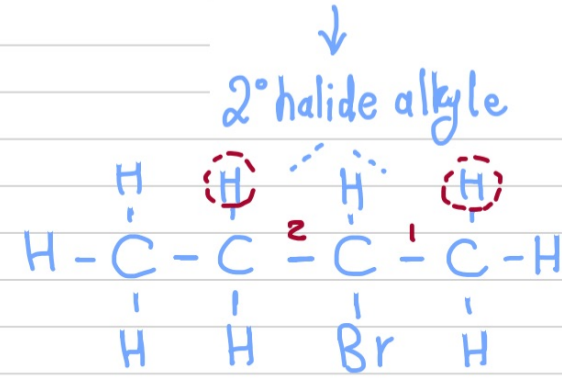 2° halide alkyle
H H H H
2 1
H - C - C - C - C - H
H H Br H